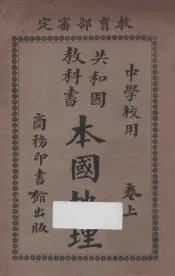 教育部審定
中學校用
共和國
教科書
本國地理
卷上
商務印書館出版